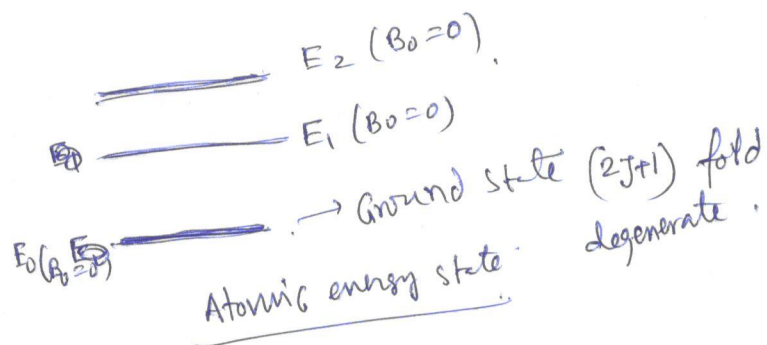 E₂ (B₀=0).
E₁ (B₀=0)
E₀(B₀=0) → Ground state (2J+1) fold
degenerate.
Atomic energy state.